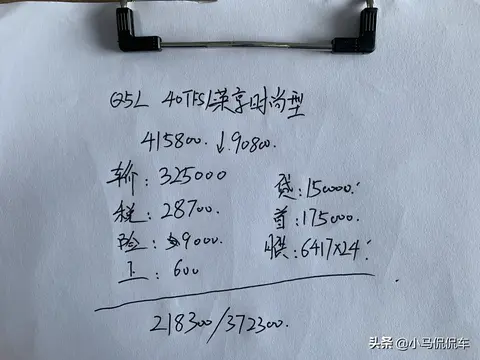 Q5L 40TFSI荣享时尚型
415800. ↓90800.
车价: 325000
税: 28700.
险: 9000.
上: 600
贷: 150000.
首: 175000.
月供: 6417×24
218300/372300.
头条 @小马侃侃车